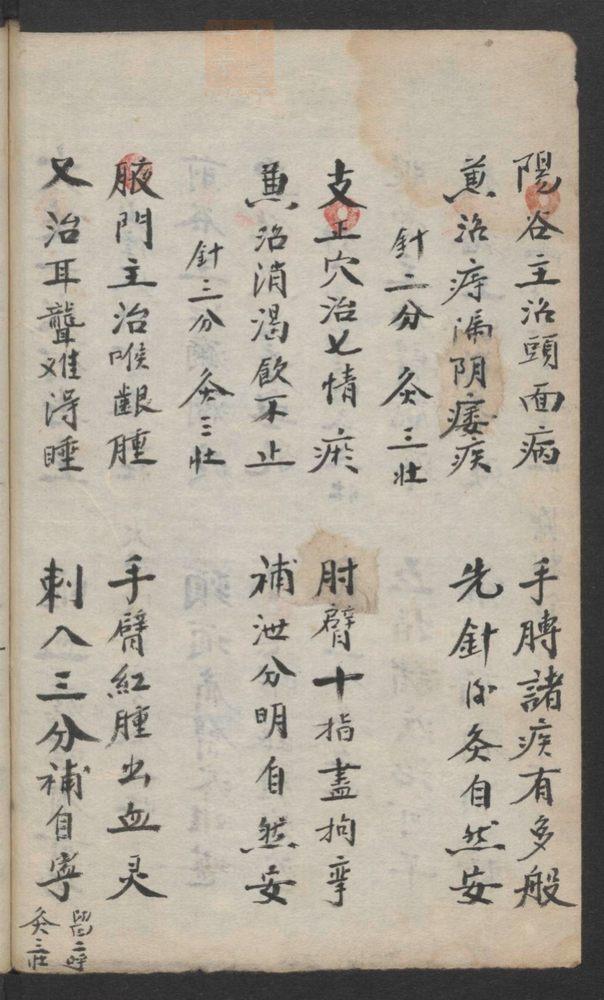 陽谷主治頭面病　手膊諸疾有多般
兼治痔漏阴痿疾　先針后灸自然安
針二分　灸三壮
支正穴治七情疾　肘臂十指盡拘挛
兼治消渴飲不止　補泄分明自然安
針三分　灸三壮
腋門主治喉齦腫　手臂紅腫出血灵
又治耳聾难得睡　刺入三分補自寧
留二呼
灸三壮